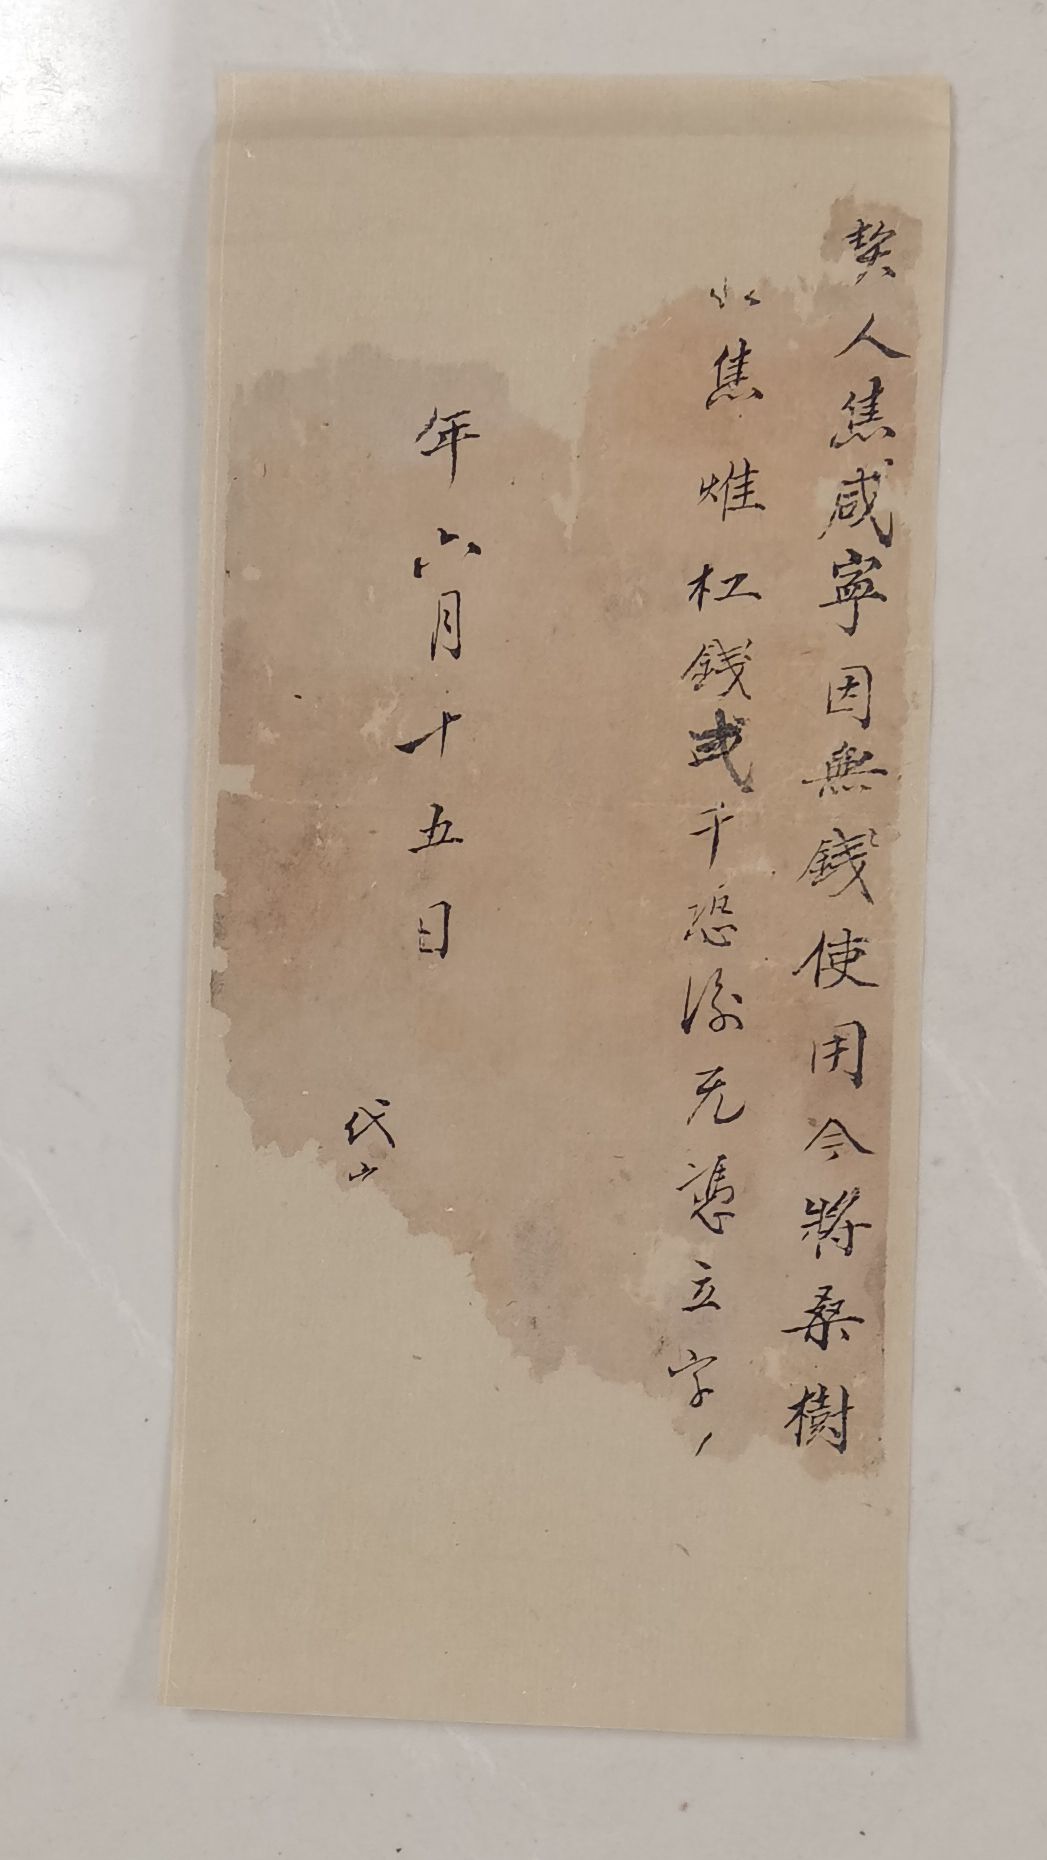 契人焦咸寧因無錢使用今將桑樹
焦𤈷杠錢弍千恐後无憑立字
年六月十五日
代